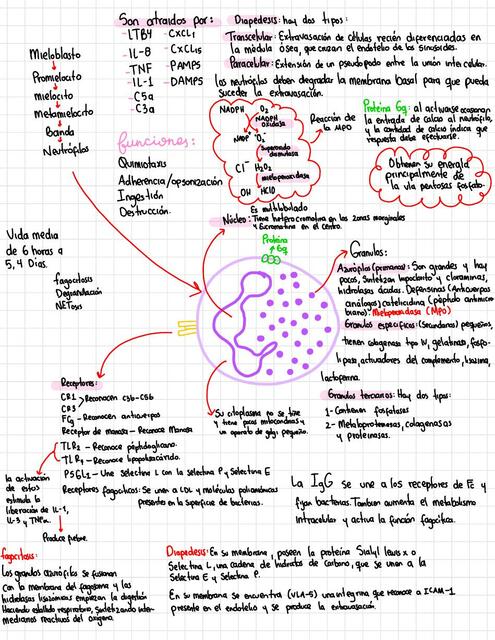 Mieloblasto
Promielocito
mielocito
Metamielocito
Banda
Neutrófilos
Vida media
de 6 horas a
5,4 Días.
fagocitosis
Degranulación
NETosis
Son atraídos por:
- LTB4
- IL-8
- TNF
- IL-1
- C5a
- C3a
- CXCL1
- CXCL15
- PAMPS
- DAMPS
funciones:
Quimiotaxis
Adherencia/opsonización
Ingestión
Destrucción.
Diapedesis: hay dos tipos:
Transcelular: Extravasación de células recién diferenciadas en
la médula ósea, que cruzan el endotelio de los sinusoides.
Paracelular: Extensión de un pseudopodo entre la unión intercelular.
los neutrófilos deben degradar la membrana basal para que pueda
suceder la extravasación.
NADPH O2
NADPH
oxidasa
NADP+ O2-
Superóxido
dismutasa
Cl- H2O2
mieloperoxidasa
OH HClO
Reacción de
la MPO
Proteína Gq: al activarse ocasionan
la entrada de calcio al neutrófilo,
y la cantidad de calcio indica que
respuesta debe efectuarse.
Obtienen su energía
principalmente de
la vía pentosas fosfato.
Es multilobulado
Núcleo: Tiene heterocromatina en las zonas marginales
y Eucromatina en el centro.
Proteína
Gq
Granulos:
Azurófilos (primarios): Son grandes y hay
pocos, sintetizan hipoclorito y cloraminas,
hidrolasas ácidas. Defensinas (Anticuerpos
análogos) catelicidina (péptido antimicro
biano). Mieloperoxidasa (MPO)
Granulos específicos: (Secundarios) pequeños,
tienen colagenasa tipo IV, gelatinasa, fosfo-
lipasa, activadores del complemento, lisozima,
lactoferrina.
Granulos terciarios: Hay dos tipos:
1- Contienen fosfatasas
2- Metaloproteinasas, colagenasas
y proteinasas.
Su citoplasma no se tiñe
y tiene pocas mitocondrias y
un aparato de golgi pequeño.
Receptores:
CR1
CR3
Reconocen C3b-C5b
FCg - Reconocen anticuerpos
Receptor de manosa - Reconoce Manosa
TLR2 - Reconoce peptidoglicano.
TLR4 - Reconoce lipopolisacárido.
PSGL1 - Une selectina L con la selectina P y Selectina E
Receptores fagocíticos: Se unen a LDL y moléculas polianiónicas
presentes en la superficie de bacterias.
la activación
de estos
estimula la
liberación de IL-1,
IL-3 y TNFα.
Produce fiebre.
La IgG se une a los receptores de FC y
fijan bacterias. Tambien aumenta el metabolismo
intracelular y activa la función fagocítica.
fagocitosis:
Los granulos azurófilos se fusionan
con la membrana del fagosoma y las
hidrolasas lisosómicas empiezan la digestión
Haciendo estallido respiratorio, sintetizando inter-
mediarios reactivos del oxígeno.
Diapedesis: En su membrana, poseen la proteína Sialyl lewis x o
Selectina L, una cadena de hidratos de carbono, que se unen a la
Selectina E y Selectina P.
En su membrana se encuentra (VLA-5) una integrina que reconoce a ICAM-1
presente en el endotelio y se produce la extravasación.